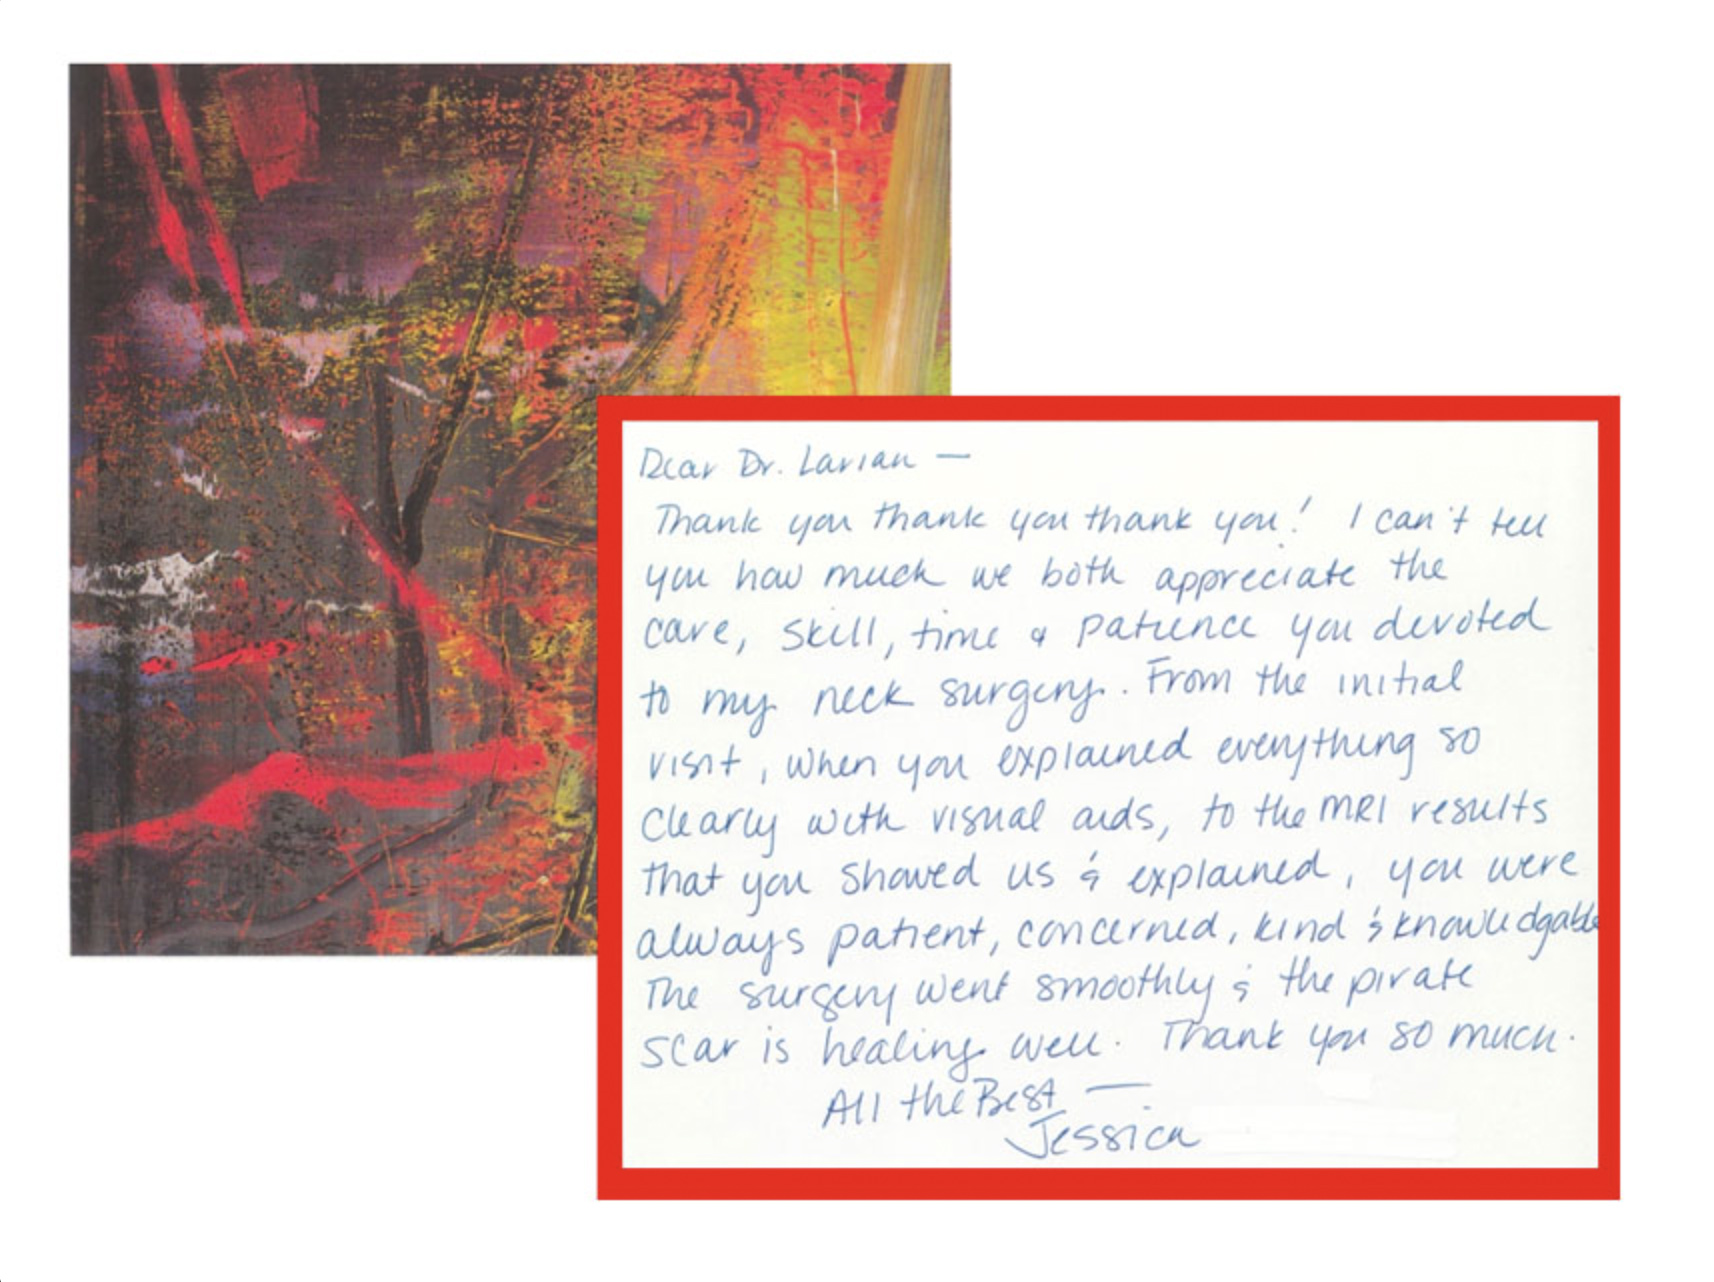 Dear Dr. Larian —
Thank you thank you thank you! I can't tell
you how much we both appreciate the
care, skill, time & patience you devoted
to my neck surgery. From the initial
visit, when you explained everything so
clearly with visual aids, to the MRI results
that you showed us & explained, you were
always patient, concerned, kind & knowledgable
The surgery went smoothly & the pirate
scar is healing well. Thank you so much.
All the Best —
Jessica